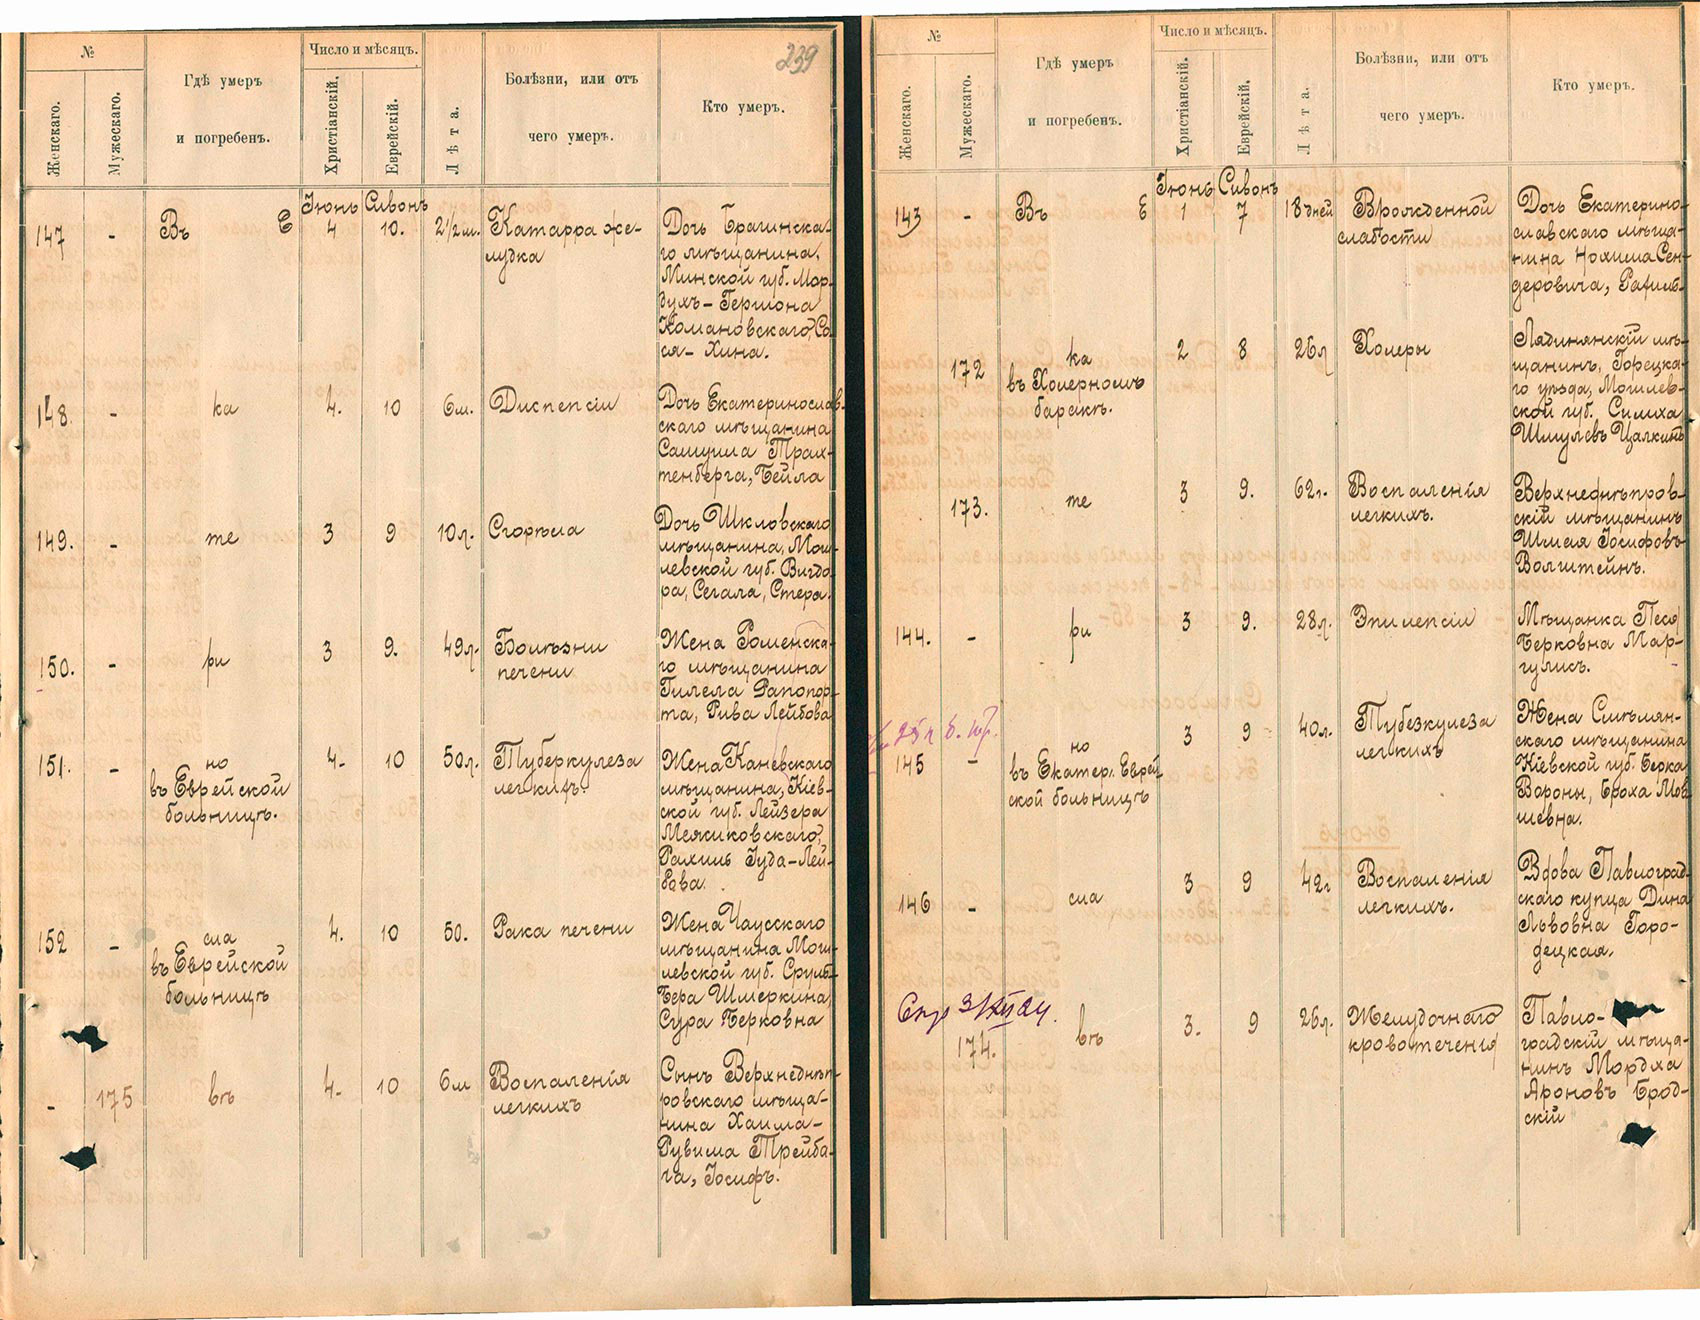 239
№
Женскаго.
Мужескаго.
Гдѣ умеръ
и погребенъ.
Число и мѣсяцъ.
Христіанскій.
Еврейскій.
Лѣта.
Болѣзни, или отъ
чего умеръ.
Кто умеръ.
Іюнь Сивонъ
147 - Въ Е 4 10. 2½ м. Катарра же-
лудка
Дочь Брагинска-
го мѣщанина,
Минской губ. Мор-
духъ-Гершона
Комановскаго, Со-
ся-Хина.
148. - ка 4. 10 6м. Диспепсіи
Дочь Екатеринослав-
скаго мѣщанина
Самуила Трах-
тенберга, Бейла
149. - те 3 9 10л. Сгорѣла
Дочь Шкловскаго
мѣщанина, Моги-
левской губ. Вигдо-
ра, Сегала, Стера.
150. - ри 3 9. 49л. Болѣзни
печени
Жена Роменска-
го мѣщанина
Гилела Рапопор-
та, Рива Лейбова
151. - но 4- 10 50л. Туберкулеза
въ Еврейской
больницѣ.
легкихъ.
Жена Каневскаго
мѣщанина, Кіев-
ской губ. Лейзера
Межиковскаго,
Рахиль Іуда-Лей-
бова.
152 - сла 4. 10 50. Рака печени
въ Еврейской
больницѣ
Жена Чаусскаго
мѣщанина Моги-
левской губ. Сруль-
Бера Шмеркина,
Сура Берковна
- 175 въ 4- 10 6м Воспаленія
легкихъ
Сынъ Верхнеднѣп-
ровскаго мѣща-
нина Хаима-
Рувима Трейба-
ча, Іосифъ.
№
Женскаго.
Мужескаго.
Гдѣ умеръ
и погребенъ.
Число и мѣсяцъ.
Христіанскій.
Еврейскій.
Лѣта.
Болѣзни, или отъ
чего умеръ.
Кто умеръ.
Іюнь Сивонъ
143 - Въ Е 1 7 18 дней Врожденной
слабости
Дочь Екатерино-
славскаго мѣща-
нина Нохима Сен-
деровича, Рафиль-
172 ка 2 8 26л Холеры
въ Холерномъ
баракѣ.
Лядинянскій мѣ-
щанинъ, Горецка-
го уѣзда, Могилев-
ской губ. Симиха
Шмулевъ Цалкинъ
173. те 3 9. 62г. Воспаленія
легкихъ.
Верхнеднѣпров-
скій мѣщанинъ
Шмая Іосифовъ
Волштейнъ.
144. - ри 3 9. 28л. Эпилепсіи
Мѣщанка Песя
Берковна Мар-
гулисъ.
145 - но 3 9 40л. Тубезкулеза
въ Екатер. Еврей-
ской больницѣ
легкихъ
Жена Смѣлян-
скаго мѣщанина
Кіевской губ. Берка
Вороны, Броха Мов-
шевна.
146 - сла 3 9 42г Воспаленія
легкихъ.
Вдова Павлоград-
скаго купца Дина
Львовна Горо-
децкая.
174. въ 3. 9 26л. Желудочнаго
кровотеченія
Павло-
градскій мѣща-
нинъ Мордха
Ароновъ Брод-
скій